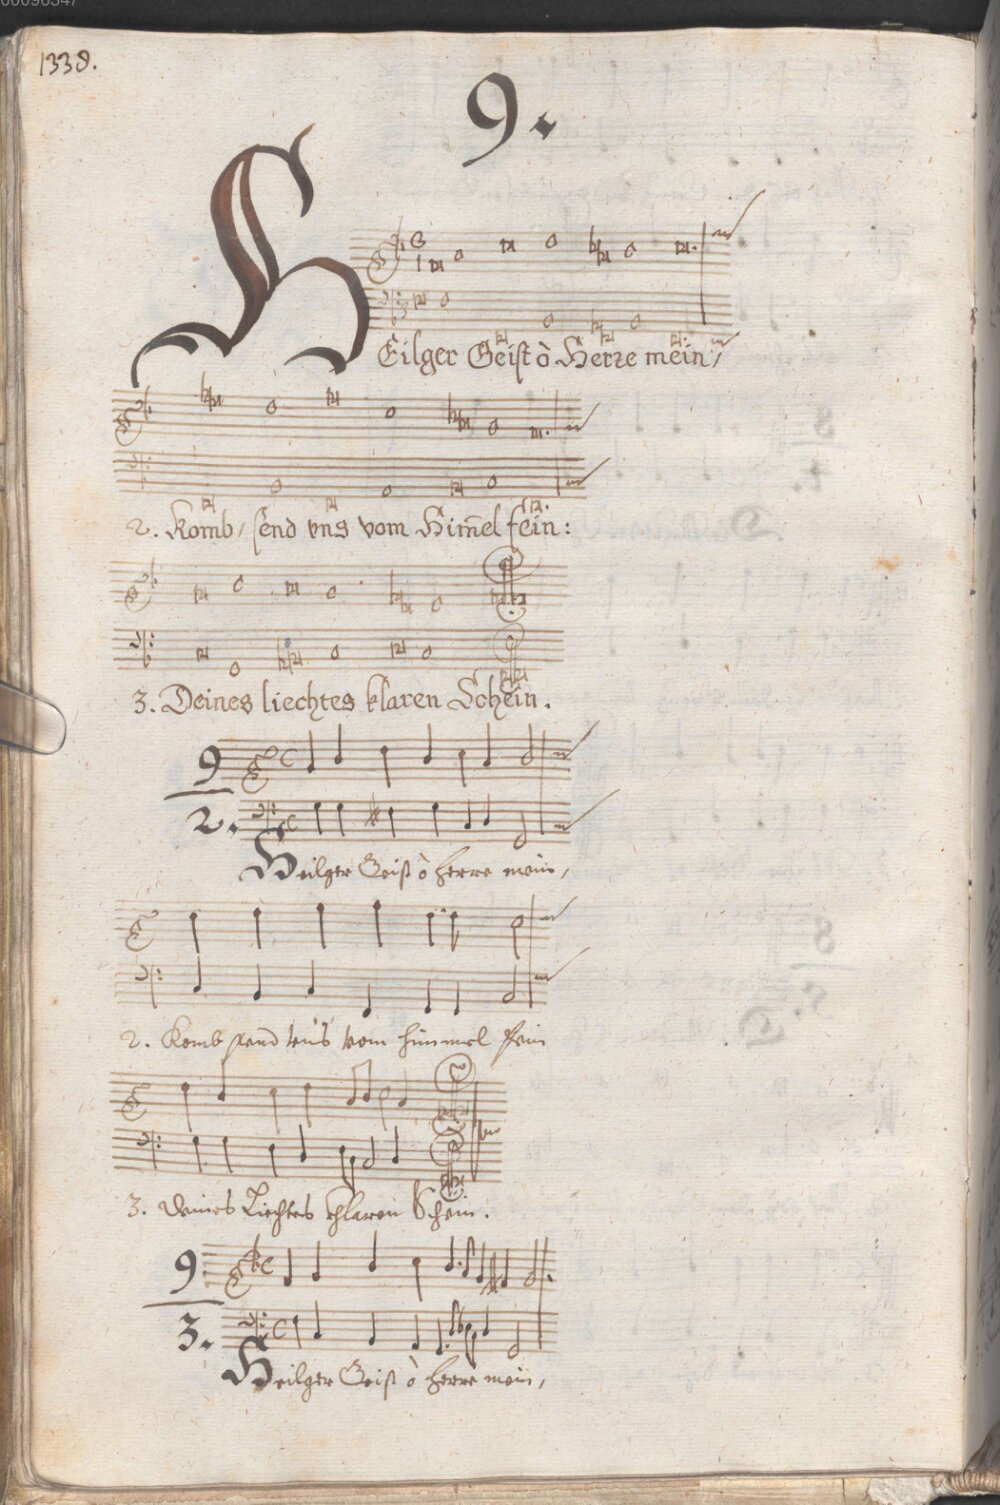 00096347
1338.
9.
HEilger Geist ò Herre mein,
2. Komb, send vns vom Him̄el fein:
3. Deines liechtes klaren Schein.
9
2.
Heilger Geist ò Herre mein,
2. Komb send vns vom himmel fein
3. Deines Liechtes khlaren Schein.
9.
3.
Heilger Geist ò Herre mein,